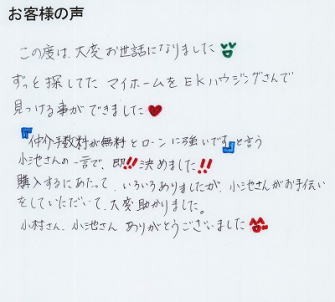 お客様の声
この度は大変お世話になりました
ずっと探してた マイホームを EKハウジングさんで
見つける事ができました❤
『仲介手数料が無料とローンに強いです』と言う
小池さんの一言で、即!!決めました!!
購入するにあたって、いろいろありましたが、小池さんがお手伝い
をしていただいて、大変助かりました。
小村さん、小池さん ありがとうございました